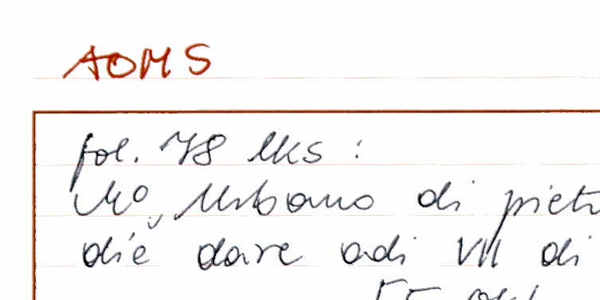 AOMS
fol. 78 lks :
Mo Urbano di piet
die dare adi VII di